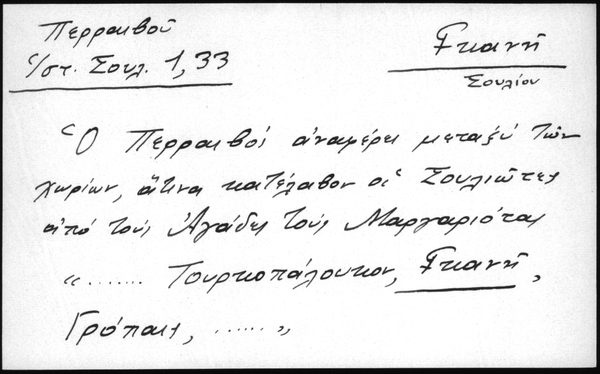 Περραιβοῦ
Ἱστ. Σουλ. 1,33
Γκανῆ
Σουλίου
Ὁ Περραιβός ἀναφέρει μεταξύ τῶν
χωρίων, ἅτινα κατέλαβον οἱ Σουλιῶτες
ἀπό τούς Ἀγάδες τούς Μαργαριότας
«....... Τουρκοπάλουκον, Γκανῆ,
Γρόπαις, ......»